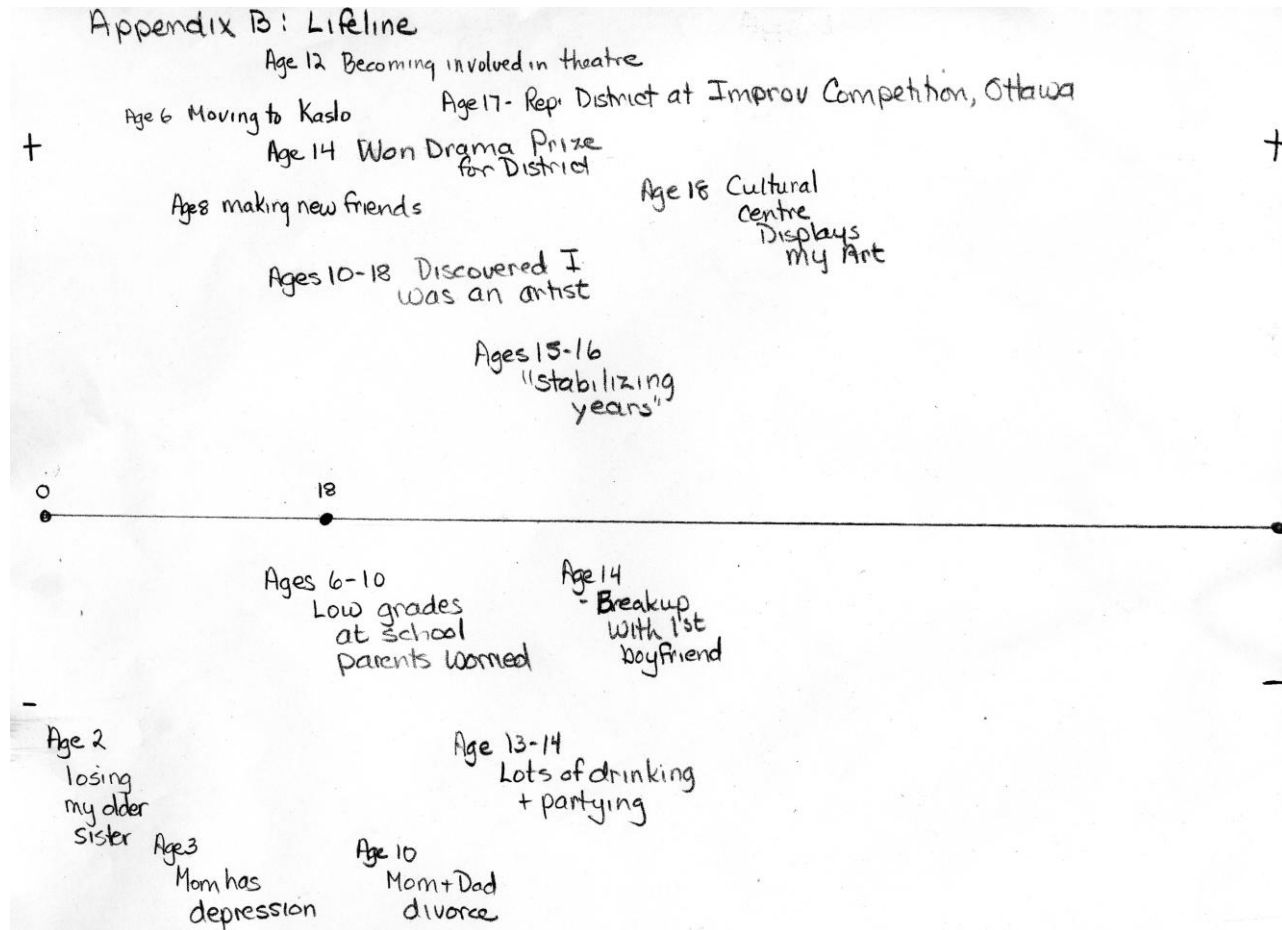 Appendix B: Lifeline
Age 12 Becoming involved in theatre
Age 17- Rep. District at Improv Competition, Ottawa
Age 6 Moving to Kaslo
+
+
Age 14 Won Drama Prize
for District
Age 18 Cultural
centre
Displays
my Art
Age 8 making new friends
Ages 10-18 Discovered I
was an artist
Ages 15-16
"stabilizing
years"
0
18
Ages 6-10
Low grades
at school
parents worried
Age 14
- Breakup
with 1'st
boyfriend
-
-
Age 2
losing
my older
sister
Age 13-14
Lots of drinking
+ partying
Age 3
Mom has
depression
Age 10
Mom + Dad
divorce